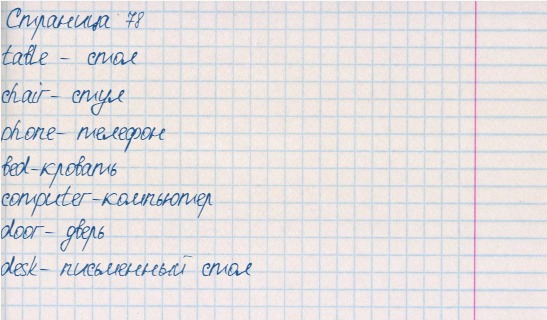 Страница 78
table - стол
chair- стул
phone- телефон
bed-кровать
computer-компьютер
door- дверь
desk- письменный стол